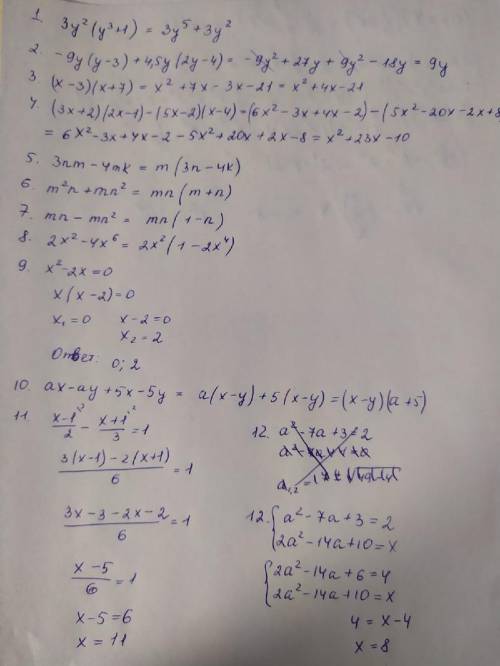 1. 3y²(y³+1) = 3y⁵+3y²
2. -9y(y-3)+4,5y(2y-4) = -9y²+27y+9y²-18y = 9y
3. (x-3)(x+7) = x²+7x-3x-21 = x²+4x-21
4. (3x+2)(2x-1)-(5x-2)(x-4)=(6x²-3x+4x-2)-(5x²-20x-2x+8
= 6x²-3x+4x-2-5x²+20x+2x-8=x²+23x-10
5. 3nm-4mk = m(3n-4k)
6. m²n+mn² = mn(m+n)
7. mn-mn² = mn(1-n)
8. 2x²-4x⁶ = 2x²(1-2x⁴)
9. x²-2x=0
x(x-2)=0
x₁=0 x-2=0
x₂=2
Ответ: 0; 2
10. ax-ay+5x-5y = a(x-y)+5(x-y)=(x-y)(a+5)
11. x-1/2 - x+1/3 = 1
3(x-1)-2(x+1)/6 = 1
3x-3-2x-2/6 = 1
x-5/6 = 1
x-5=6
x=11
12. a²-7a+3=2
12. { a²-7a+3=2
2a²-14a+10=x
{ 2a²-14a+6=4
2a²-14a+10=x
4=x-4
x=8